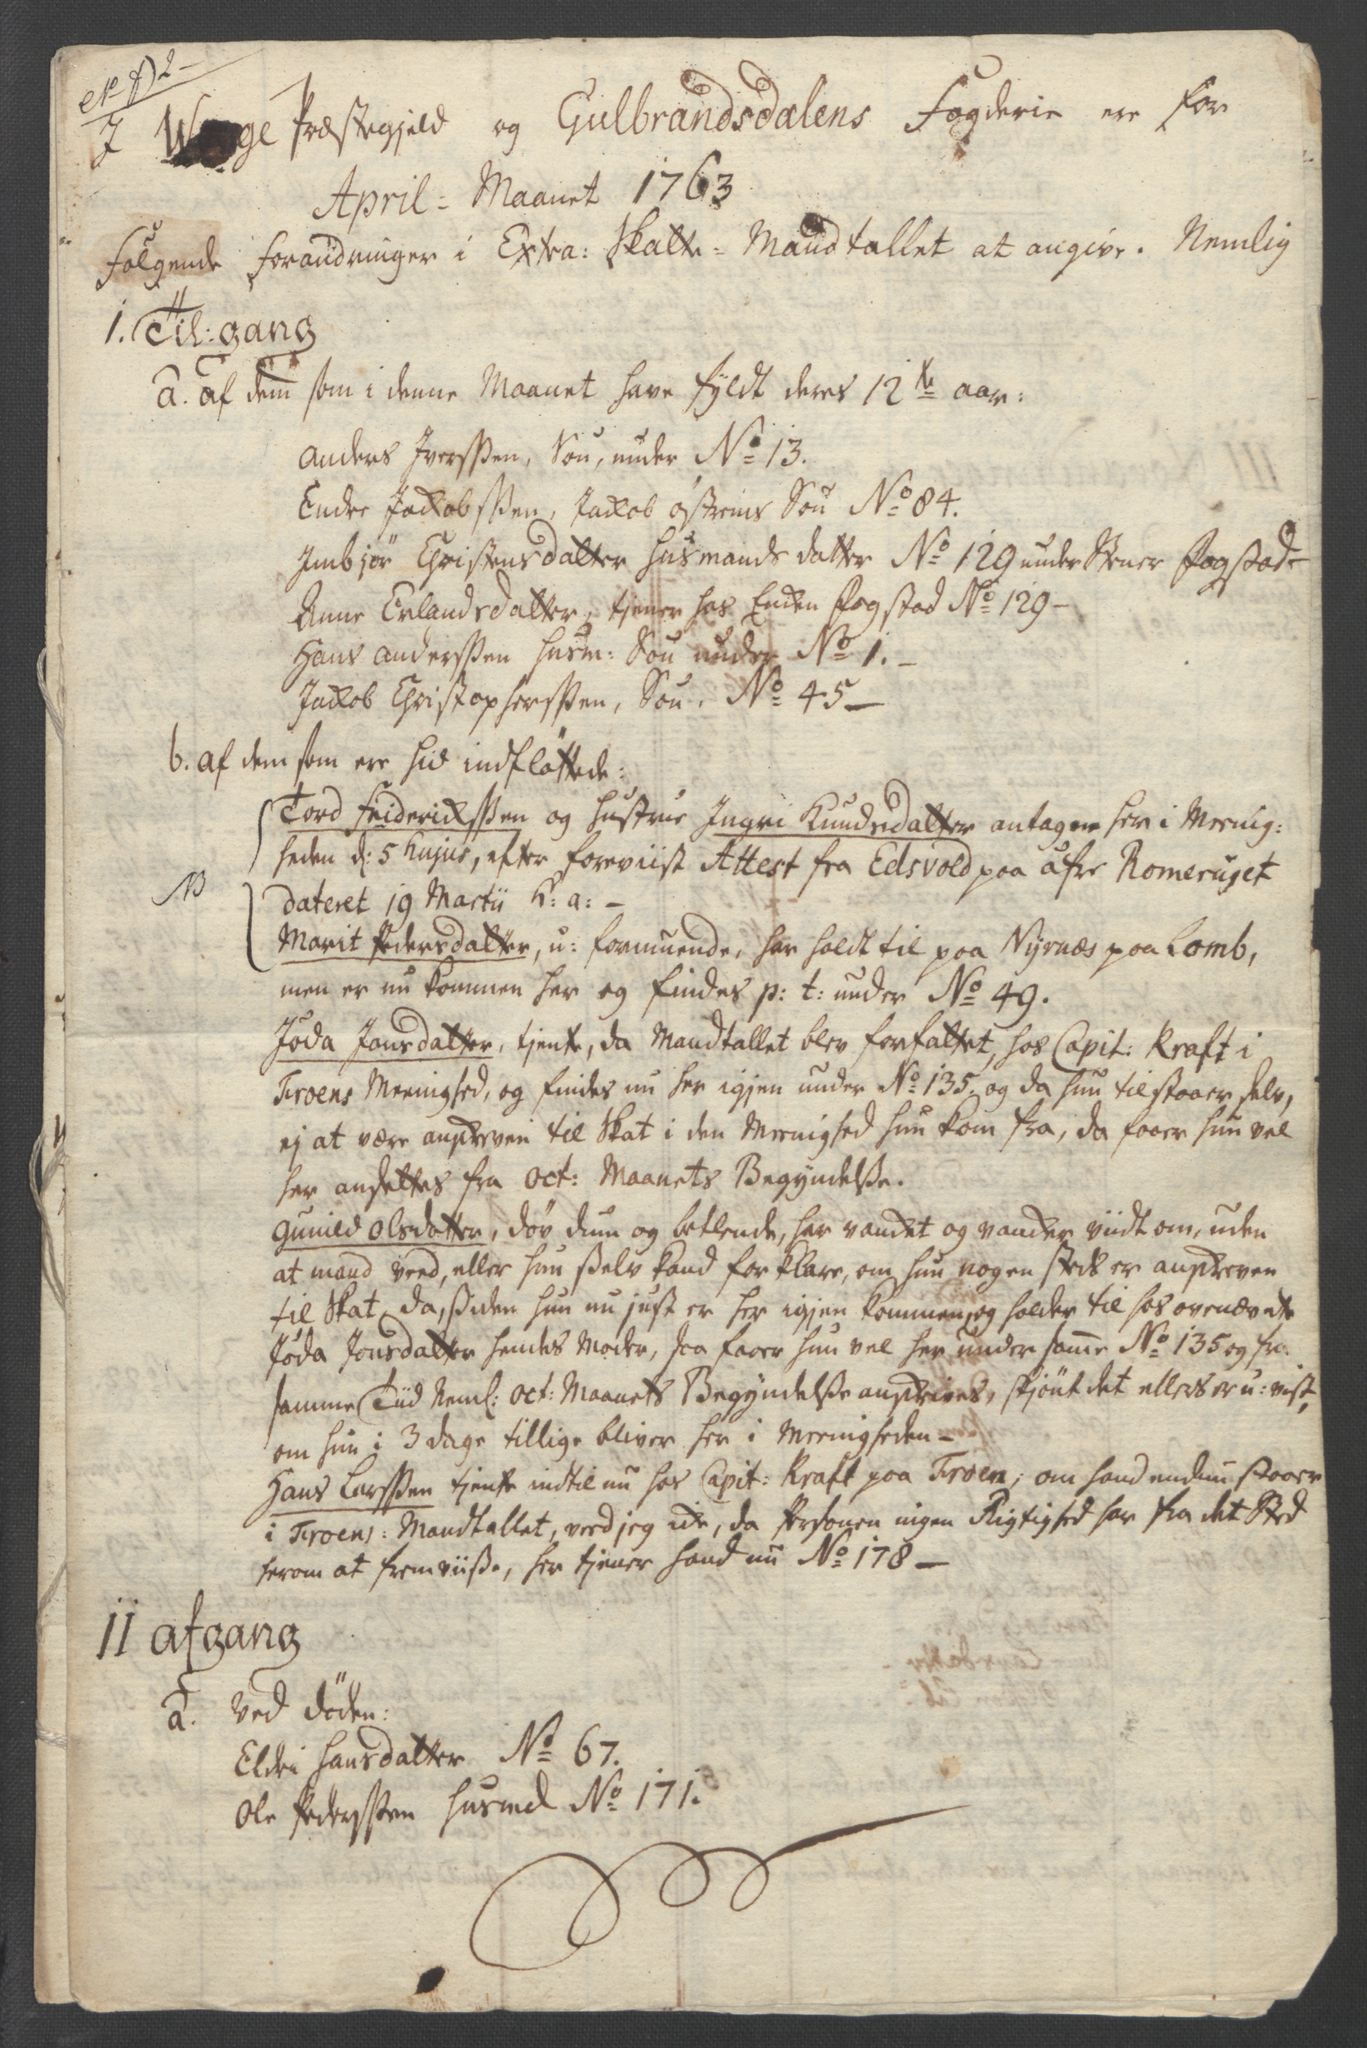 I Waage Præstegjeld og Gulbrandsdalens Fogderie ere for
April = Maanet 1763
Følgende forandringer i Extra: Skatte = Mandtallet at angive. Nemlig
1. Til:gang
a. af dem som i denne Maanet have fyldt deres 12te aar:
Anders Iverssen, Søn, under No 13.
Endre Jackobssen, Jackob østreims Søn No 84.
Imbjør Christensdatter husmands datter No 129 under Stener Fogstad
Anne Erlandsdatter, tjener hos Enken Fogstad No 129 -
Hans Anderssen husm: Søn under No 1. -
Jackob Christopherssen, Søn, No 45 -
b. af dem som ere hid indfløttede:
Tord Friderickssen og hustrue Ingri Knudsdatter antagen her i Meenig:
heden d: 5 hujus, efter foreviist Attest fra Edsvold paa øfre Romeruget
NB
dateret 19 Martii h: a: -
Marit Pedersdatter, u: formuende, har holdt til paa Nyrnæs paa Lomb,
men er nu kommen her og findes p: t: under No 49.
Jøda Jonsdatter, tjente, da Mandtallet blev forfattet, hos Capit: Kraft i
Froens Meenighed, og findes nu her igjen under No 135. og da hun tilstaaer selv,
ej at være anskreven til Skat i den Meenighed hun kom fra, da faaer hun vel
her ansettes fra Oct: Maanets Begyndelse.
Gunild Olsdatter, døv dum og betlende, har vandet og vander viidt om, uden
at mand veed, eller hun selv kand forklare, om hun nogen steds er anskreven
til Skat, da, siden hun nu just er her igjen kommen, og holder til hos ovennævnte
Jøda Jonsdatter hendes Moder, saa faaer hun vel her under samme No 135 og fra
samme Tiid Neml: Oct: Maanets Begyndelse anskrives, skjønt det ellers er u: vist,
om hun i 3 dage tillige bliver her i Meenigheden -
Hans Larssen tjente indtil nu hos Capit: Kraft paa Froen, om hand endnu staaer
i Froens: Mandtallet, veed jeg icke, da Personen ingen Rigtighed har fra det Sted
herom at fremviise, her tjener hand nu No 178 -
II afgang
a. Ved døden:
Eldri Hansdatter No 67.
Ole Pederssen husmd No 171.